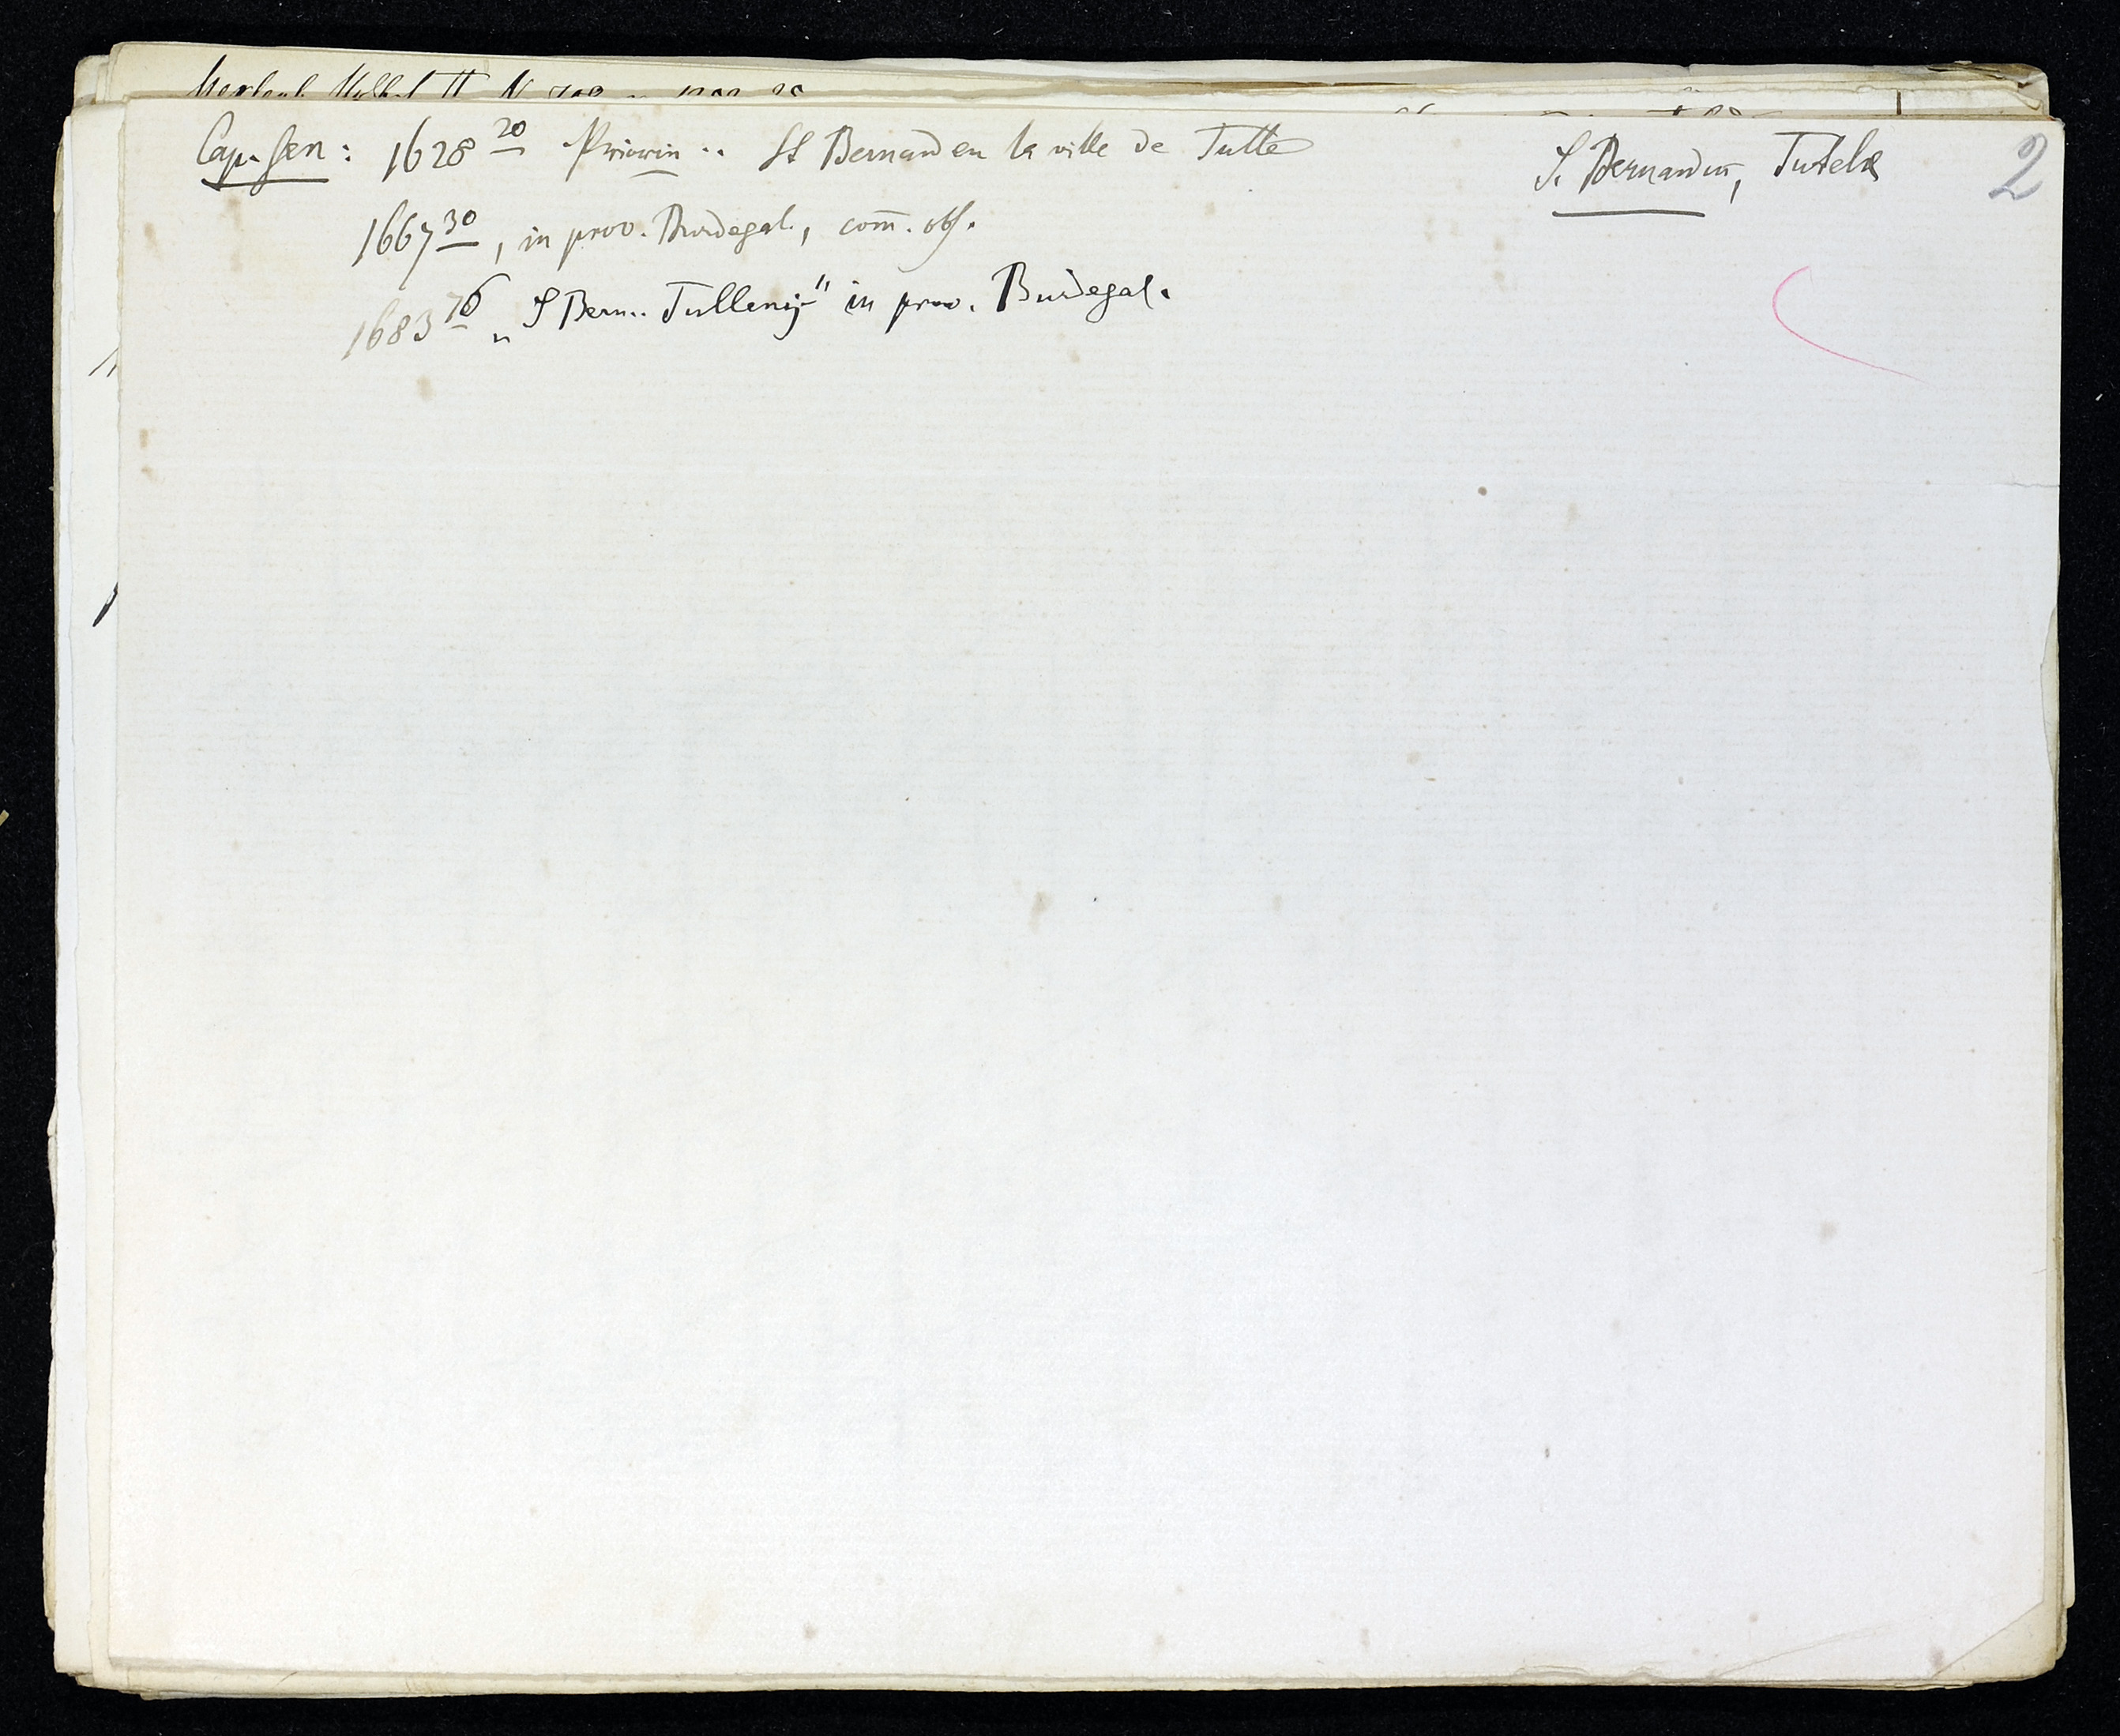 Cap. Gen: 1628 20 Priorin .. St Bernard en la ville de Tulle
S. Bernardin, Tutelae
2
1667 30, in prov. Burdegal., com̄. obs.
1683 76 „S Bern.. Tullensis" in prov. Burdegal.